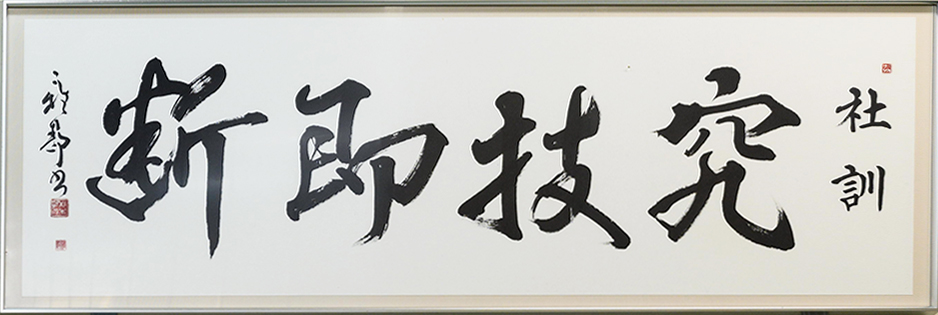 社訓
究技即断